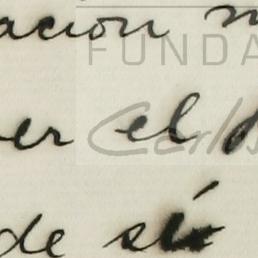 acion
FUNDA
er el
Carlos
de sí